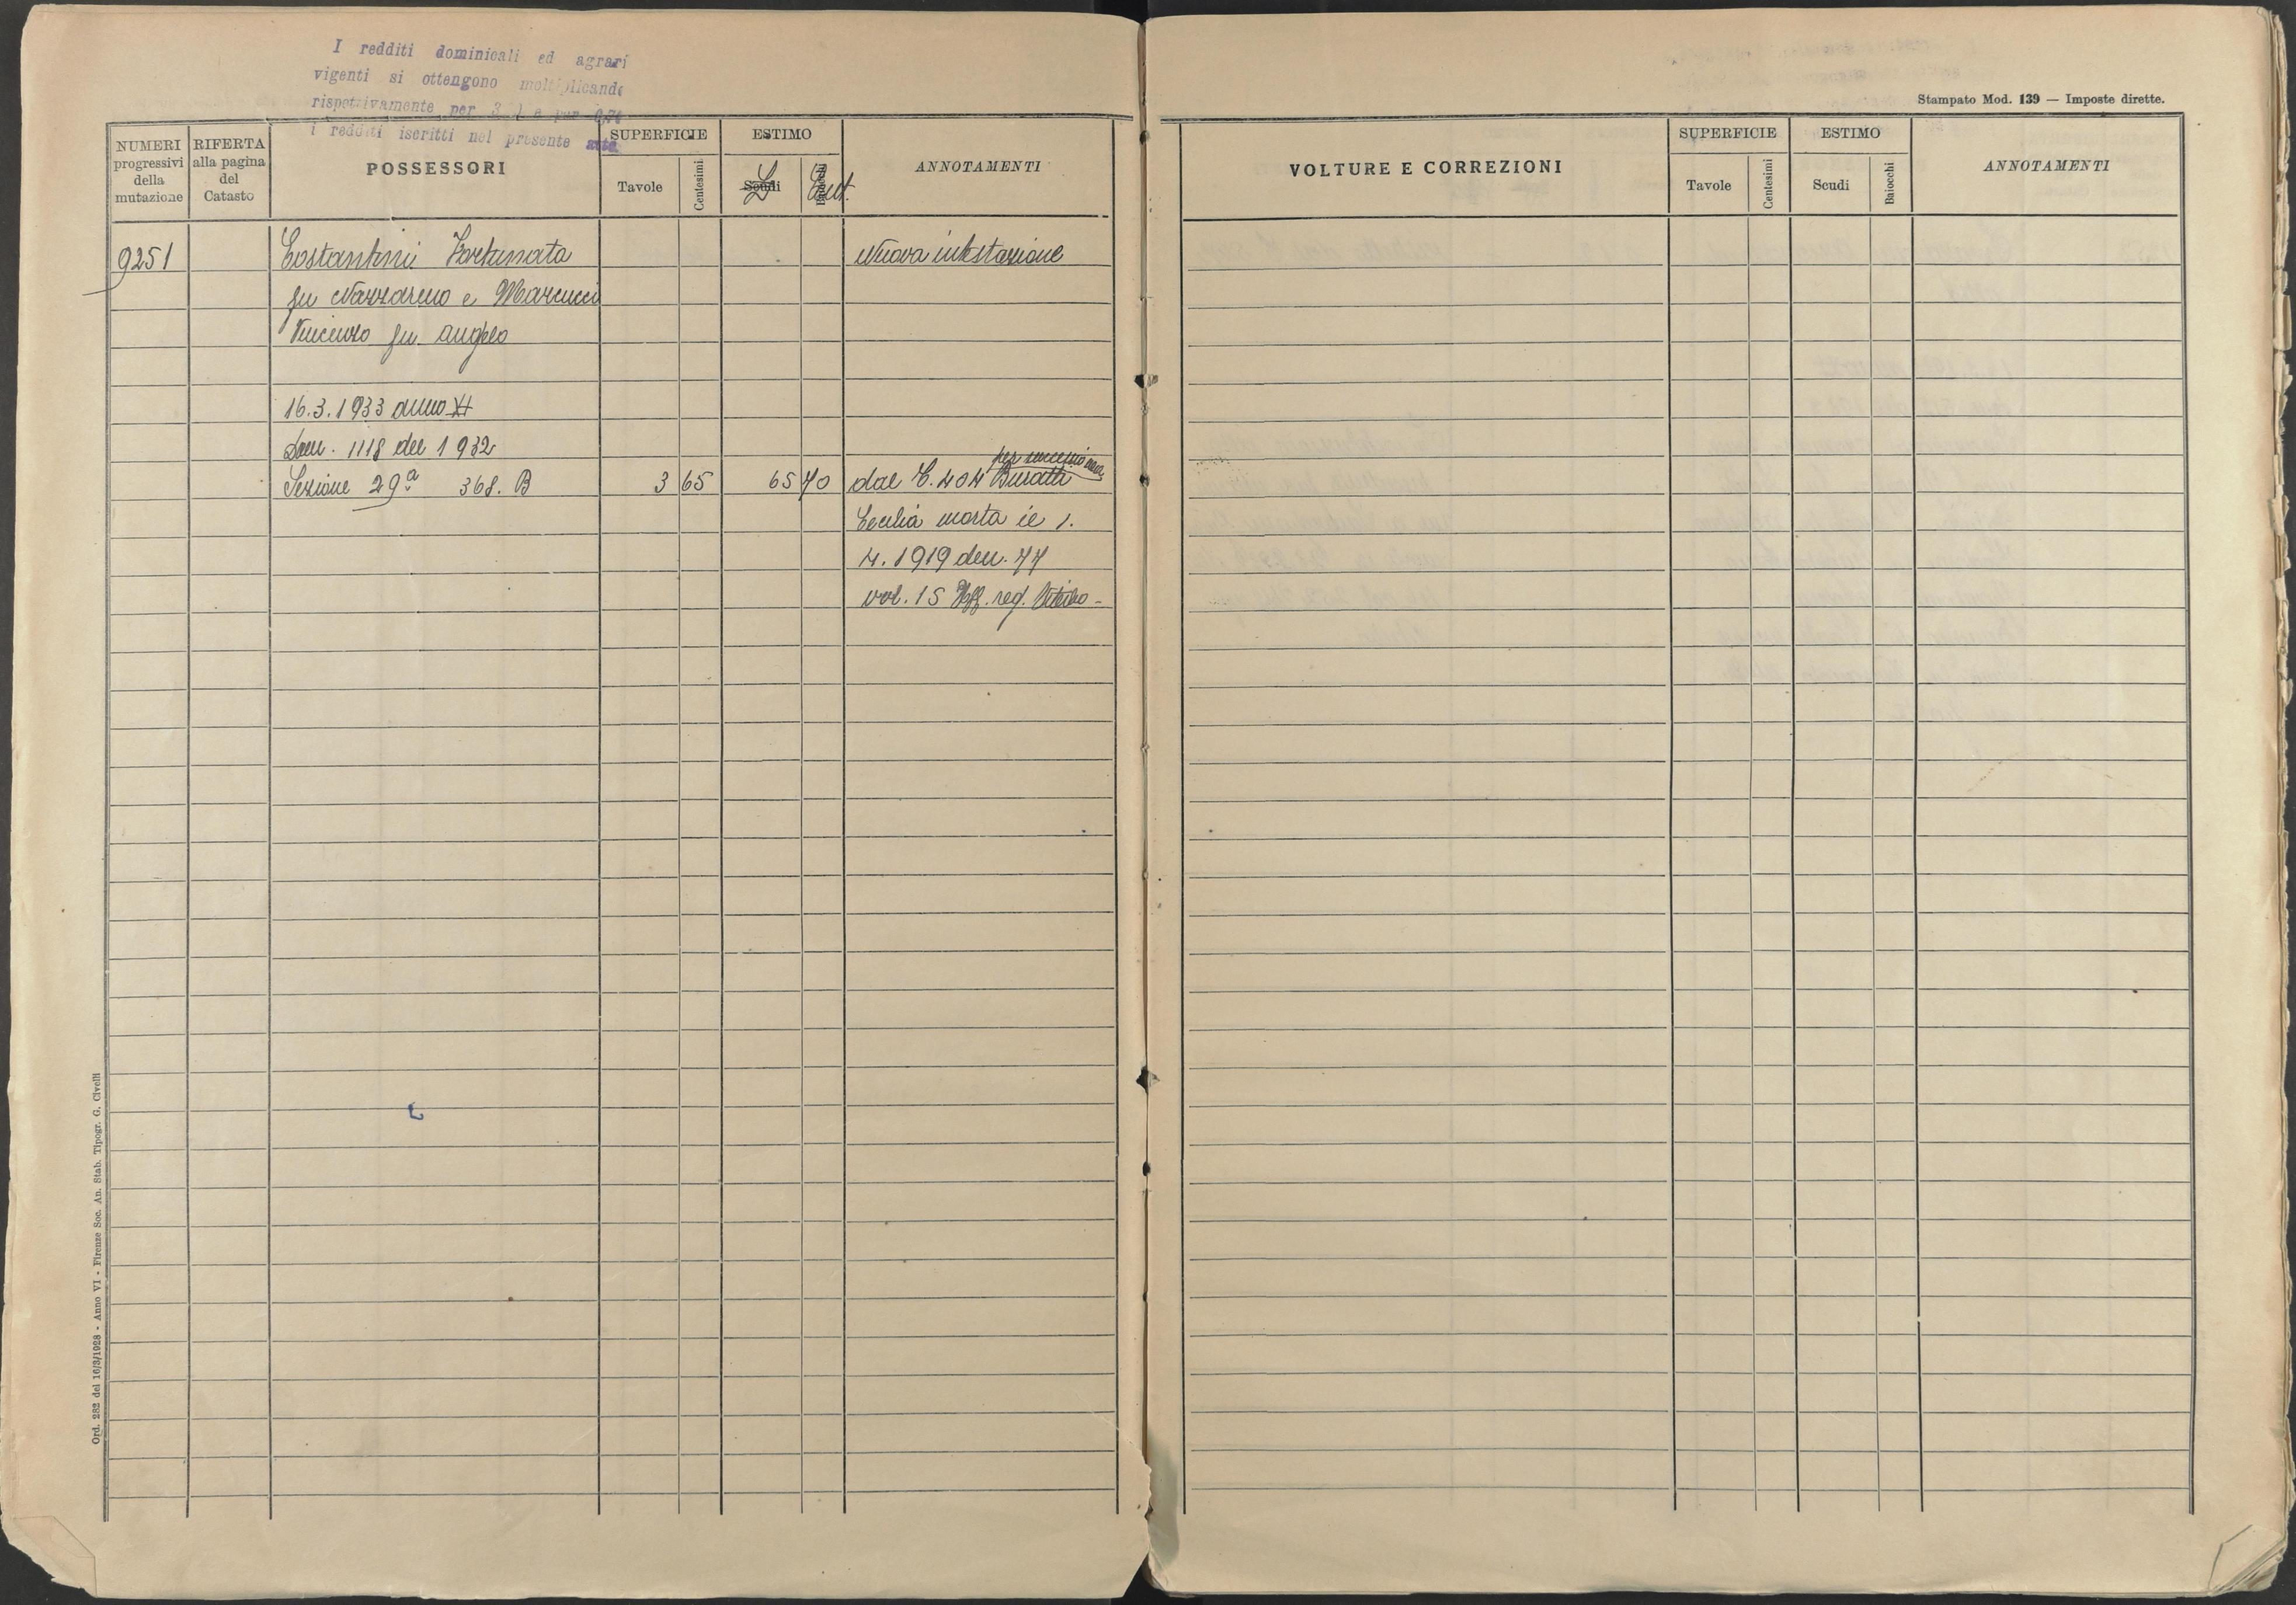 I redditi dominicali ed agrari
vigenti si ottengono moltiplicando
rispettivamente per
i redditi iscritti nel presente atto
Stampato Mod. 139 — Imposte dirette.
NUMERI progressivi della mutazione
RIFERTA alla pagina del Catasto
POSSESSORI
SUPERFICIE
Tavole
Centesimi
ESTIMO
Scudi
L
Baiocchi
Cent.
ANNOTAMENTI
VOLTURE E CORREZIONI
SUPERFICIE
Tavole
Centesimi
ESTIMO
Scudi
Baiocchi
ANNOTAMENTI
9251 Costantini Fortunata Nuova intestazione
fu Nazzareno e Marcucci
Vincenzo fu Angelo
16.3.1933 anno XI
Dom. 1118 del 1932
per successione
Sezione 29ª 368. B 3 65 65 70 dal C. 404 Buratti
Cecilia morta il 1.
4. 1919 den. 77
vol. 15 Uff. reg. Viterbo -
Ord. 282 del 16/3/1928 - Anno VI - Firenze Soc. An. Stab. Tipogr. G. Civelli